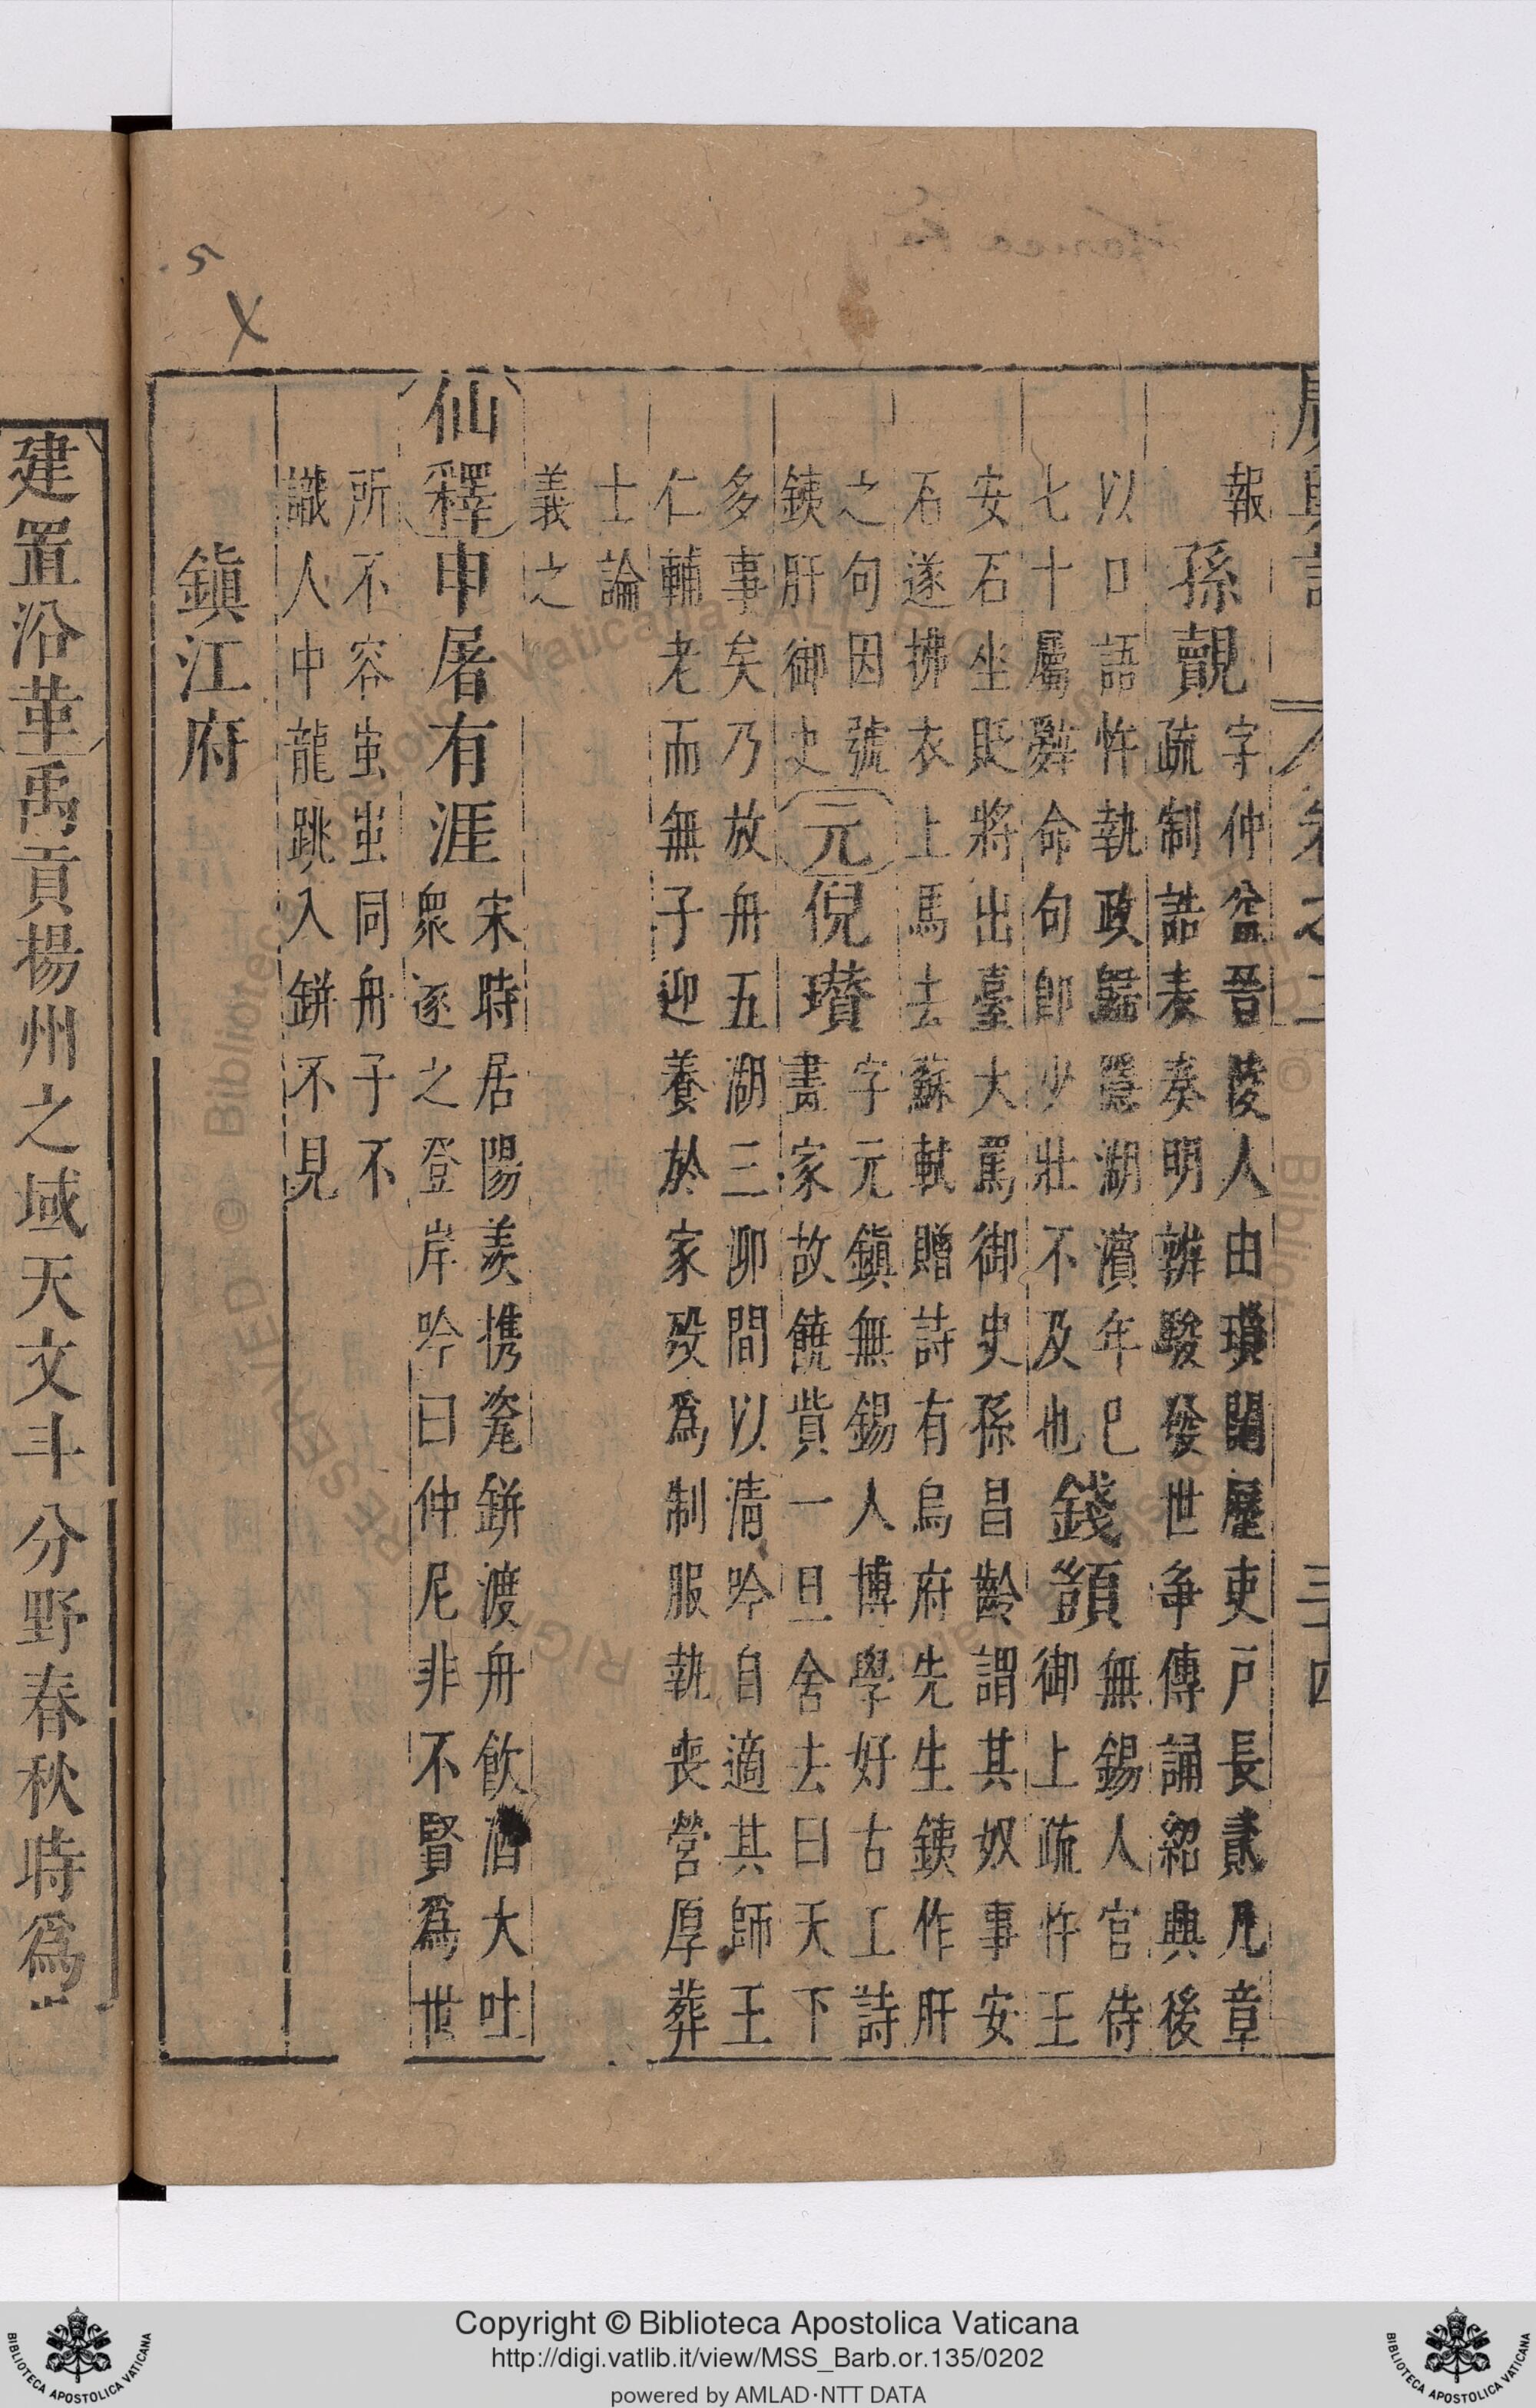 廣輿記 卷之三 三十四
報
孫覿
字仲益晉陵人由瑣闥歷吏戸長貳凡章
疏制誥表奏明辨駿發世爭傳誦紹興後
以口語忤執政歸隱湖濱年已
七十屬辭命句卽少壯不及也
錢顗
無錫人官侍
御上疏忤王
安石坐貶將出臺大罵御史孫昌齡謂其奴事安
石遂拂衣上馬去蘇軾贈詩有烏府先生鉄作肝
之句因號
鉄肝御史
元
倪瓚
字元鎮無錫人博學好古工詩
畫家故饒貲一旦舍去曰天下
多事矣乃放舟五湖三泖間以清吟自適其師王
仁輔老而無子迎養於家殁爲制服執喪營厚葬
士論
義之
仙釋
申屠有涯
宋時居陽羨携瓷缾渡舟飲酒大吐
衆逐之登岸吟曰仲尼非不賢爲世
所不容蚩蚩同舟子不
識人中龍跳入缾不見
鎮江府
建置沿革禹貢揚州之域天文斗分野春秋時爲
5
X
Copyright © Biblioteca Apostolica Vaticana
http://digi.vatlib.it/view/MSS_Barb.or.135/0202
powered by AMLAD·NTT DATA
BIBLIOTECA APOSTOLICA VATICANA
BIBLIOTECA APOSTOLICA VATICANA